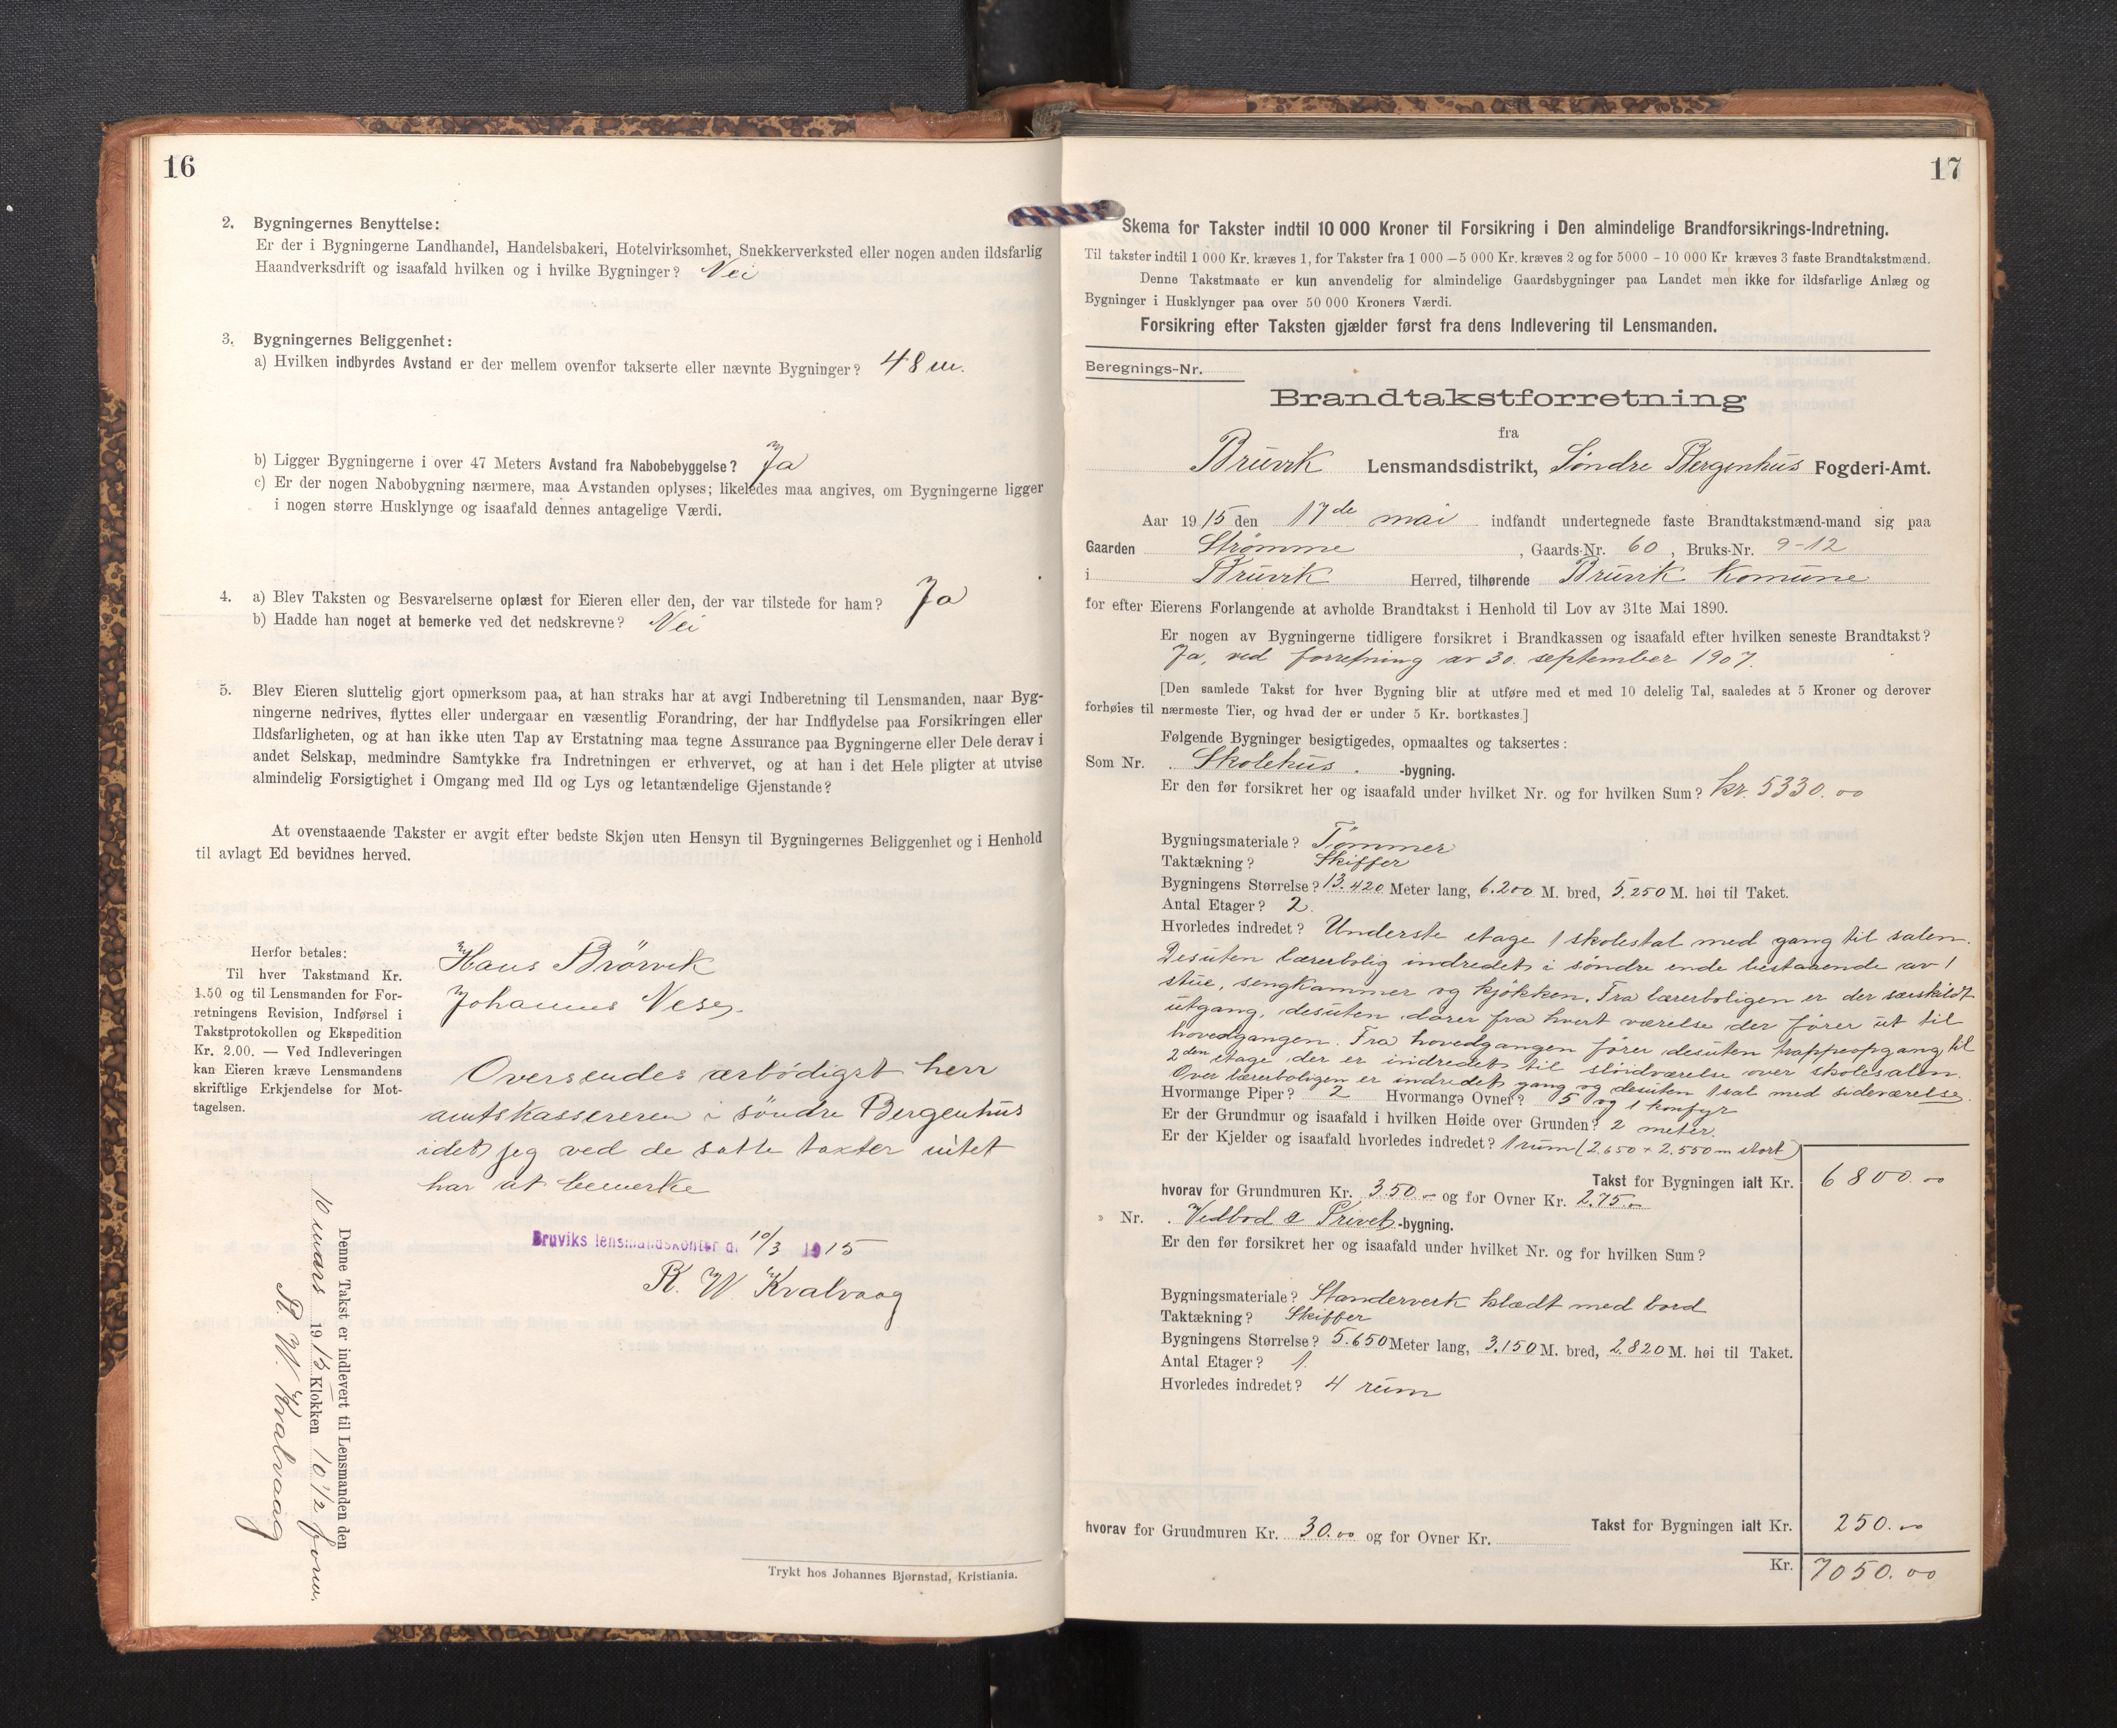 16
2. Bygningernes Benyttelse:
Er der i Bygningerne Landhandel, Handelsbakeri, Hotelvirksomhet, Snekkerverksted eller nogen anden ildsfarlig
Haandverksdrift og isaafald hvilken og i hvilke Bygninger? Nei
3. Bygningernes Beliggenhet:
a) Hvilken indbyrdes Avstand er der mellem ovenfor takserte eller nævnte Bygninger? 48 m.
b) Ligger Bygningerne i over 47 Meters Avstand fra Nabobebyggelse? Ja
c) Er der nogen Nabobygning nærmere, maa Avstanden oplyses; likeledes maa angives, om Bygningerne ligger
i nogen større Husklynge og isaafald dennes antagelige Værdi.
4. a) Blev Taksten og Besvarelserne oplæst for Eieren eller den, der var tilstede for ham? Ja
b) Hadde han noget at bemerke ved det nedskrevne? Nei
5. Blev Eieren sluttelig gjort opmerksom paa, at han straks har at avgi Indberetning til Lensmanden, naar Byg-
ningerne nedrives, flyttes eller undergaar en væsentlig Forandring, der har Indflydelse paa Forsikringen eller
Ildsfarligheten, og at han ikke uten Tap av Erstatning maa tegne Assurance paa Bygningerne eller Dele derav i
andet Selskap, medmindre Samtykke fra Indretningen er erhvervet, og at han i det Hele pligter at utvise
almindelig Forsigtighet i Omgang med Ild og Lys og letantændelige Gjenstande?
At ovenstaaende Takster er avgit efter bedste Skjøn uten Hensyn til Bygningernes Beliggenhet og i Henhold
til avlagt Ed bevidnes herved.
Herfor betales:
Til hver Takstmand Kr.
1.50 og til Lensmanden for For-
retningens Revision, Indførsel i
Takstprotokollen og Ekspedition
Kr. 2.00. — Ved Indleveringen
kan Eieren kræve Lensmandens
skriftlige Erkjendelse for Mot-
tagelsen.
Hans Brørvik
Johannes Nese.
Oversendes ærbødigst herr
amtskassereren i søndre Bergenhus
idet jeg ved de satte takster intet
har at bemerke
Bruviks lensmandskontor d. 10/3 1915
R. W Kvalvaag
Denne Takst er indlevert til Lensmanden den
10 mars 1915 Klokken 10 1/2 form.
R. W. Kvalvaag
Trykt hos Johannes Bjørnstad, Kristiania.
17
Skema for Takster indtil 10 000 Kroner til Forsikring i Den almindelige Brandforsikrings-Indretning.
Til takster indtil 1 000 Kr. kræves 1, for Takster fra 1 000 — 5 000 Kr. kræves 2 og for 5000 - 10 000 Kr kræves 3 faste Brandtakstmænd.
Denne Takstmaate er kun anvendelig for almindelige Gaardsbygninger paa Landet men ikke for ildsfarlige Anlæg og
Bygninger i Husklynger paa over 50 000 Kroners Værdi.
Forsikring efter Taksten gjælder først fra dens Indlevering til Lensmanden.
Beregnings-Nr.
Brandtakstforretning
fra
Bruvik Lensmandsdistrikt, Søndre Bergenhus Fogderi-Amt.
Aar 1915 den 17de mai indfandt undertegnede faste Brandtakstmænd-mand sig paa
Gaarden Strømme, Gaards-Nr. 60, Bruks-Nr. 9-12
i Bruvik Herred, tilhørende Bruvik Komune
for efter Eierens Forlangende at avholde Brandtakst i Henhold til Lov av 31te Mai 1890.
Er nogen av Bygningerne tidligere forsikret i Brandkassen og isaafald efter hvilken seneste Brandtakst?
Ja, ved forretning av 30. september 1907.
[Den samlede Takst for hver Bygning blir at utføre med et med 10 delelig Tal, saaledes at 5 Kroner og derover
forhøies til nærmeste Tier, og hvad der er under 5 Kr. bortkastes.]
Følgende Bygninger besigtigedes, opmaaltes og taksertes:
Som Nr. Skolehus -bygning.
Er den før forsikret her og isaafald under hvilket Nr. og for hvilken Sum? kr. 5330.00
Bygningsmateriale? Tømmer
Taktækning? Skiffer
Bygningens Størrelse? 13.420 Meter lang, 6.200 M. bred, 5.250 M. høi til Taket.
Antal Etager? 2.
Hvorledes indredet? Underste etage 1 skolesal med gang til salen.
Desuten lærerbolig indredet i søndre ende bestaaende av 1
stue, sengkammer og kjøkken. Fra lærerboligen er der særskildt
utgang, desuten dører fra hvert værelse der fører ut til
hovedgangen. Fra hovedgangen fører desuten trappeopgang til
2den etage der er indredet til sløidværelse over skolesalen.
Over lærerboligen er indredet gang og desuten 1 sal med sideværelse.
Hvormange Piper? 2 Hvormange Ovner? 5 og 1 komfyr
Er der Grundmur og isaafald i hvilken Høide over Grunden? 2 meter.
Er der Kjelder og isaafald hvorledes indredet? 1 rum (2.650 + 2.550 m stort)
Takst for Bygningen ialt Kr. 6800.00
hvorav for Grundmuren Kr. 350.- og for Ovner Kr. 275.-
» Nr. Vedbod & Privet -bygning.
Er den før forsikret her og isaafald under hvilket Nr. og for hvilken Sum?
Bygningsmateriale? Standerverk klædt med bord
Taktækning? Skiffer
Bygningens Størrelse? 5.650 Meter lang, 3.150 M. bred, 2.820 M. høi til Taket.
Antal Etager? 1.
Hvorledes indredet? 4 rum
hvorav for Grundmuren Kr. 30.00 og for Ovner Kr. Takst for Bygningen ialt Kr. 250.00
Kr. 7050.00